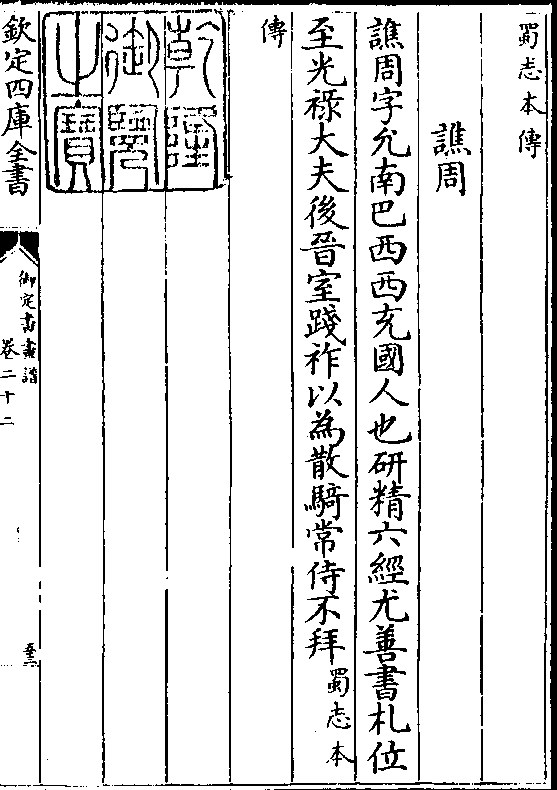 蜀志本傳
譙周
譙周字允南巴西西充國人也研精六經尤善書札位
至光祿大夫後晉室踐祚以為散騎常侍不拜蜀志本
傳
乾隆御覽之寶
欽定四庫全書
御定書畫譜
卷二十二